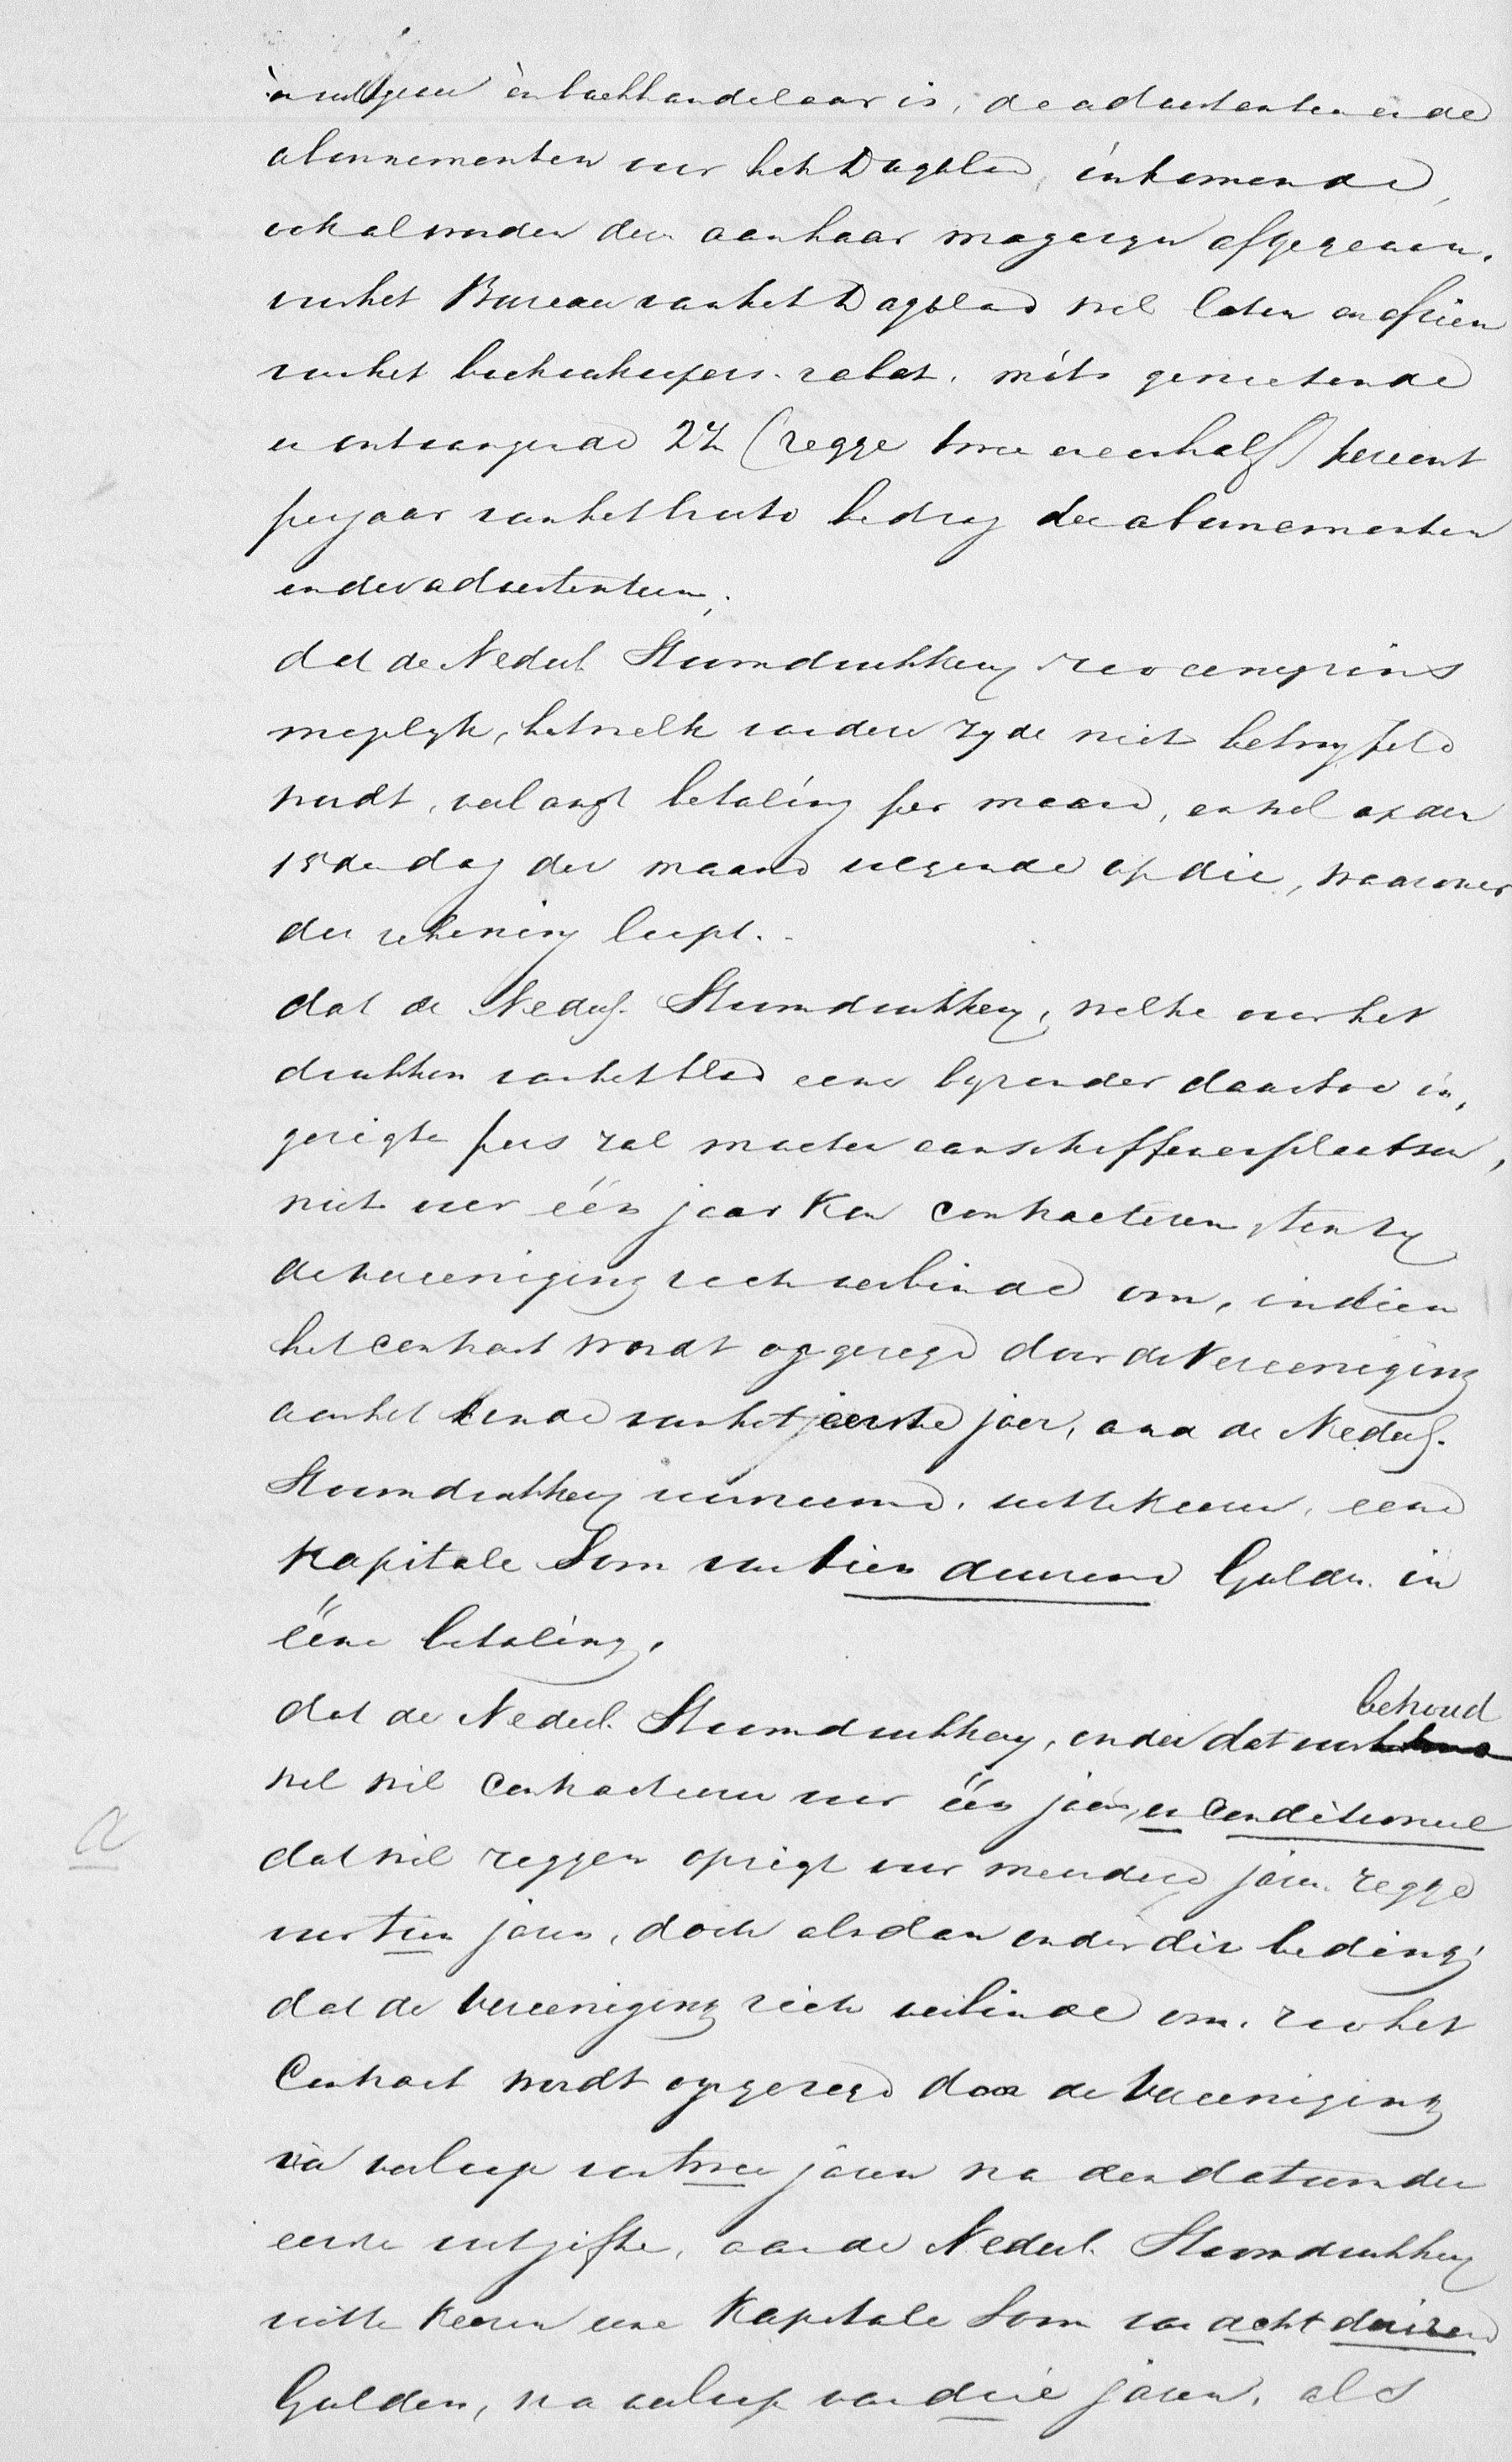 èn uitgever èn boekhandelaar is, de advertentien en de
abonnementen voor het Dagblad, inkomende,
ook al worden deze aan haar magazijn afgegeven,
van het Bureau van het Dagblad wil laten en afzien
van het boekverkoopers-rabat, mits genietende
en ontvangende 2½ (zegge twee en een half) percent
per jaar van het bruto bedrag der abonnementen
en der advertentien;
dat de Nederl. Stoomdrukkerij zeer eenigzins
mogelijk, hetwelk van deze zijde niet betwijfeld
wordt, verlangt betaling per maand, en wel op den
15den dag der maand volgende op die, waarover
de rekening loopt.
dat de Nederl. Stoomdrukkerij, welke voor het
drukken van het blad eene bijzonder daartoe in,
gerigte pers zal moeten aanschaffen en plaatsen,
niet voor één jaar kan contracteren, tenzij
de vereeniging zich verbinde om, indien
het contract wordt opgezegd door de Vereeniging
aan het einde van het eerste jaar, aan de Nederl.
Stoomdrukkerij voornoemd, uittekeeren, eene
Kapitale Som van tien duizend Gulden in
ééne betaling.
dat de Nederl. Stoomdrukkerij, onder dat voorbehoud
wel wil contracteren voor één jaar, en conditioneel
dat wil zeggen opzigt voor meerdere jaren zegge
voor tien jaren, doch alsdan onder dit beding;
dat de Vereeniging zich verbinde om, zoo het
Contract wordt opgezegd door de Vereeniging
na verloop van twee jaren na den datum der
eerste uitgifte, aan de Nederl. Stoomdrukkerij
uitte keeren eene Kapitale Som van acht duizend
Gulden, na verloop van drie jaren, als
a